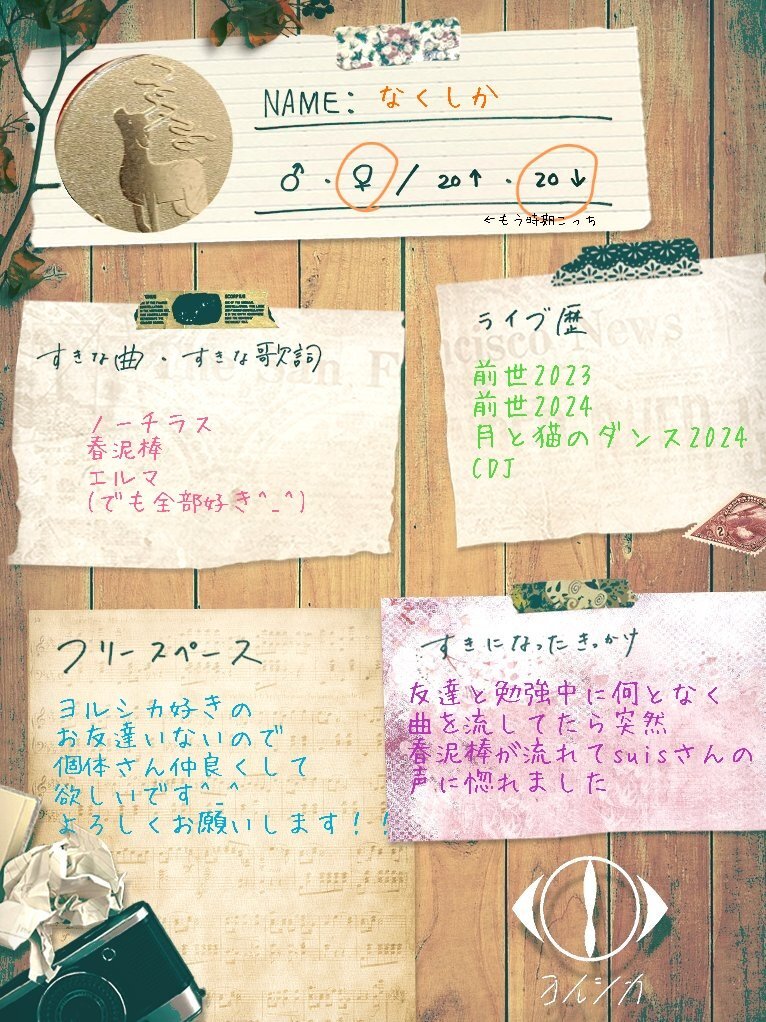 NAME: なくしか
♂・♀/20↑・20↓
←もう時期こっち
すきな曲・すきな歌詞
ノーチラス
春泥棒
エルマ
(でも全部好き^_^)
ライブ歴
前世2023
前世2024
月と猫のダンス2024
CDJ
フリースペース
ヨルシカ好きの
お友達いないので
個体さん仲良くして
欲しいです^_^
よろしくお願いします！！
すきになったきっかけ
友達と勉強中に何となく
曲を流してたら突然
春泥棒が流れてsuisさんの
声に惚れました
ヨルシカ